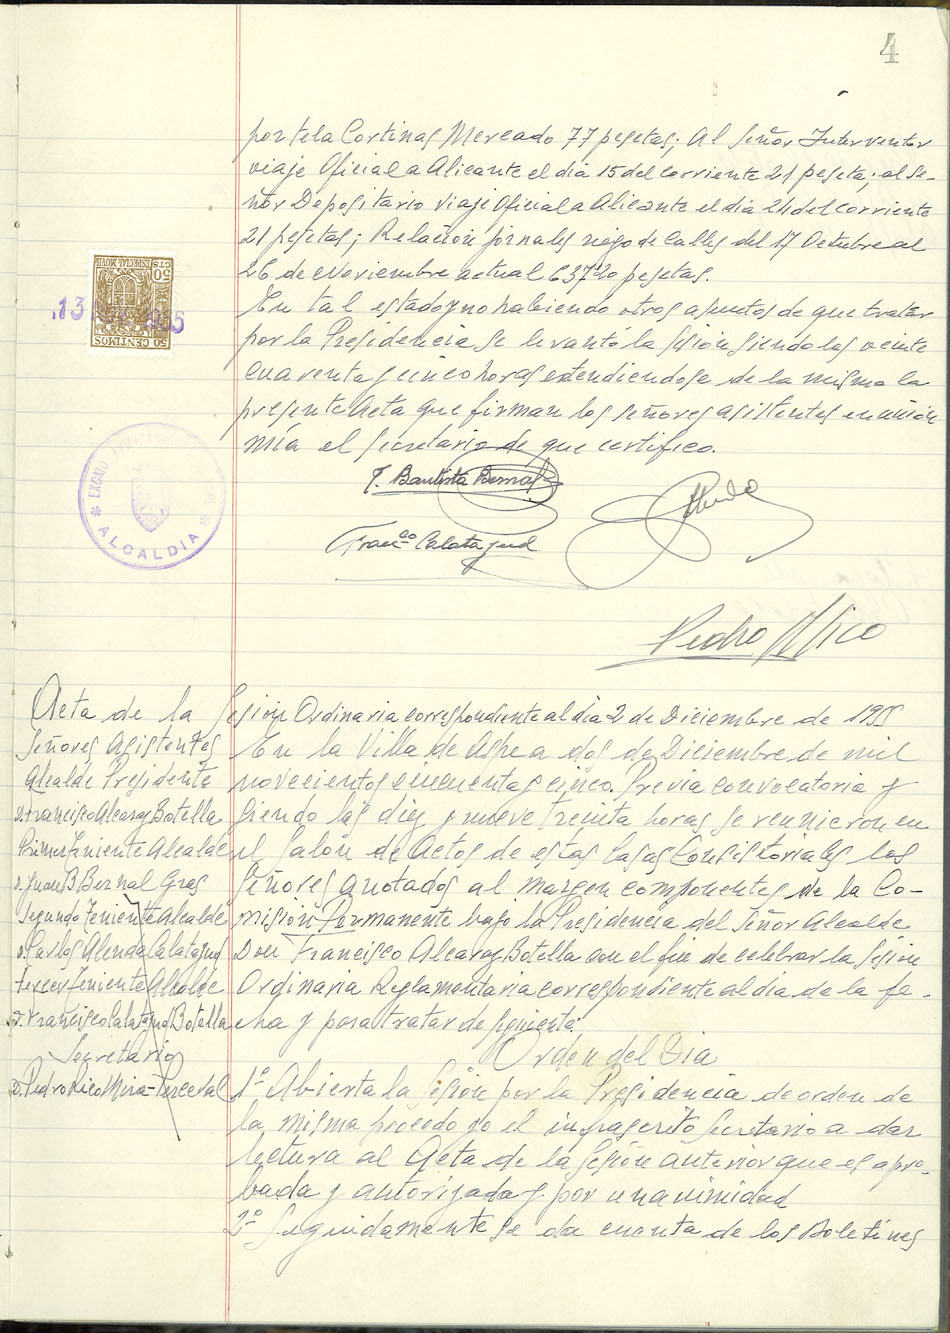 4
por tela Cortinas Mercado 77 pesetas; Al Señor Interventor
viaje Oficial a Alicante el dia 15 del corriente 21 peseta; al Se-
ñor Depositario viaje Oficial a Alicante el dia 24 del corriente
21 pesetas; Relacion jornales riego de Calles del 17 Octubre al
26 de Noviembre actual 637'20 pesetas.
En tal estado y no habiendo otros asuntos de que tratar
por la Presidencia se levantó la sesion siendo las veinte
cuarenta y cinco horas extendiendose de la misma la
presente Acta que firman los señores asistentes en unión
mía el Secretario de que certifico.
50 CENTIMOS
ESPECIAL MOVIL
50 CTS
13
EXCMO
ALCALDIA
J. Bautista Bernal
Franco Calatayud
Pedro Rico
Acta de la Sesion Ordinaria correspondiente al dia 2 de Diciembre de 1955
Señores Asistentes
Alcalde Presidente
D. Francisco Alcaraz Botella
Primer Teniente Alcalde
D. Juan B. Bernal Gras
Segundo Teniente Alcalde
D. Carlos Alenda Calatayud
Tercer Teniente Alcalde
D. Francisco Calatayud Botella
Secretario
D. Pedro Rico Mira-Perceval
En la Villa de Aspe a dos de Diciembre de mil
novecientos cincuenta y cinco. Previa convocatoria y
siendo las diez y nueve treinta horas se reunieron en
el Salón de Actos de estas Casas Consistoriales los
Señores anotados al margen componentes de la Co-
misión Permanente bajo la Presidencia del Señor Alcalde
Don Francisco Alcaraz Botella con el fin de celebrar la Sesion
Ordinaria Reglamentaria correspondiente al dia de la fe-
cha y para tratar de siguiente
Orden del Dia
1º Abierta la Sesión por la Presidencia de orden de
la misma procedo yo el infrascrito Secretario a dar
lectura al Acta de la Sesión anterior que es apro-
bada y autorizada y por unanimidad
2º Seguidamente se da cuenta de los Boletines